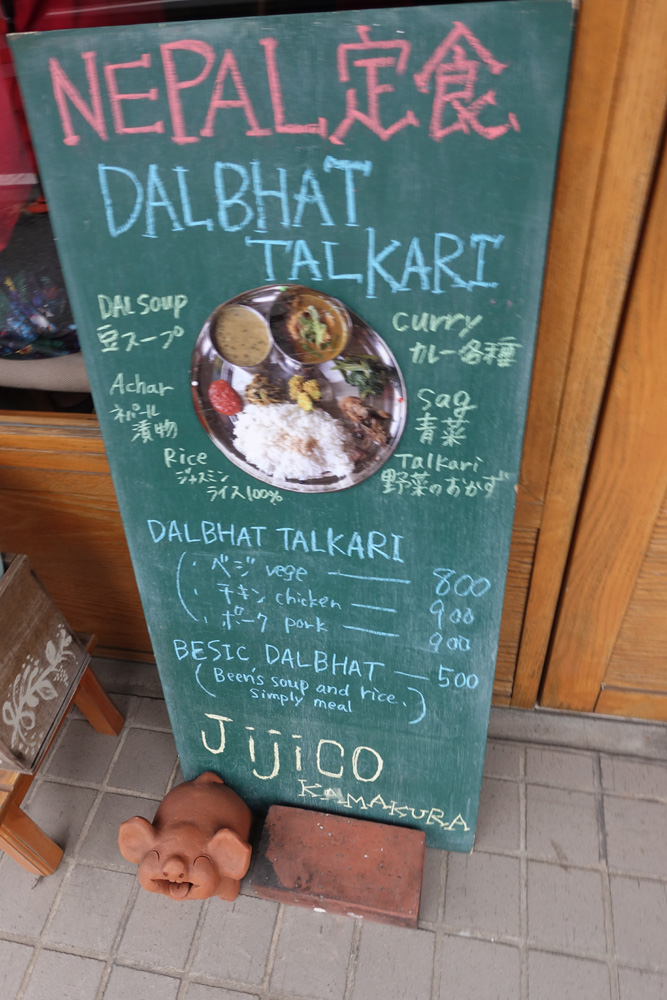 NEPAL定食
DALBHAT
TALKARI
DALSOUP
豆スープ
curry
カレー各種
Achar
ネパール
漬物
sag
青菜
Rice
ジャスミン
ライス100%
Talkari
野菜のおかず
DALBHAT TALKARI
・ベジ vege — 800
・チキン chicken — 900
・ポーク pork — 900
BESIC DALBHAT — 500
(Been's soup and rice.
simply meal)
JijiCO
KAMAKURA